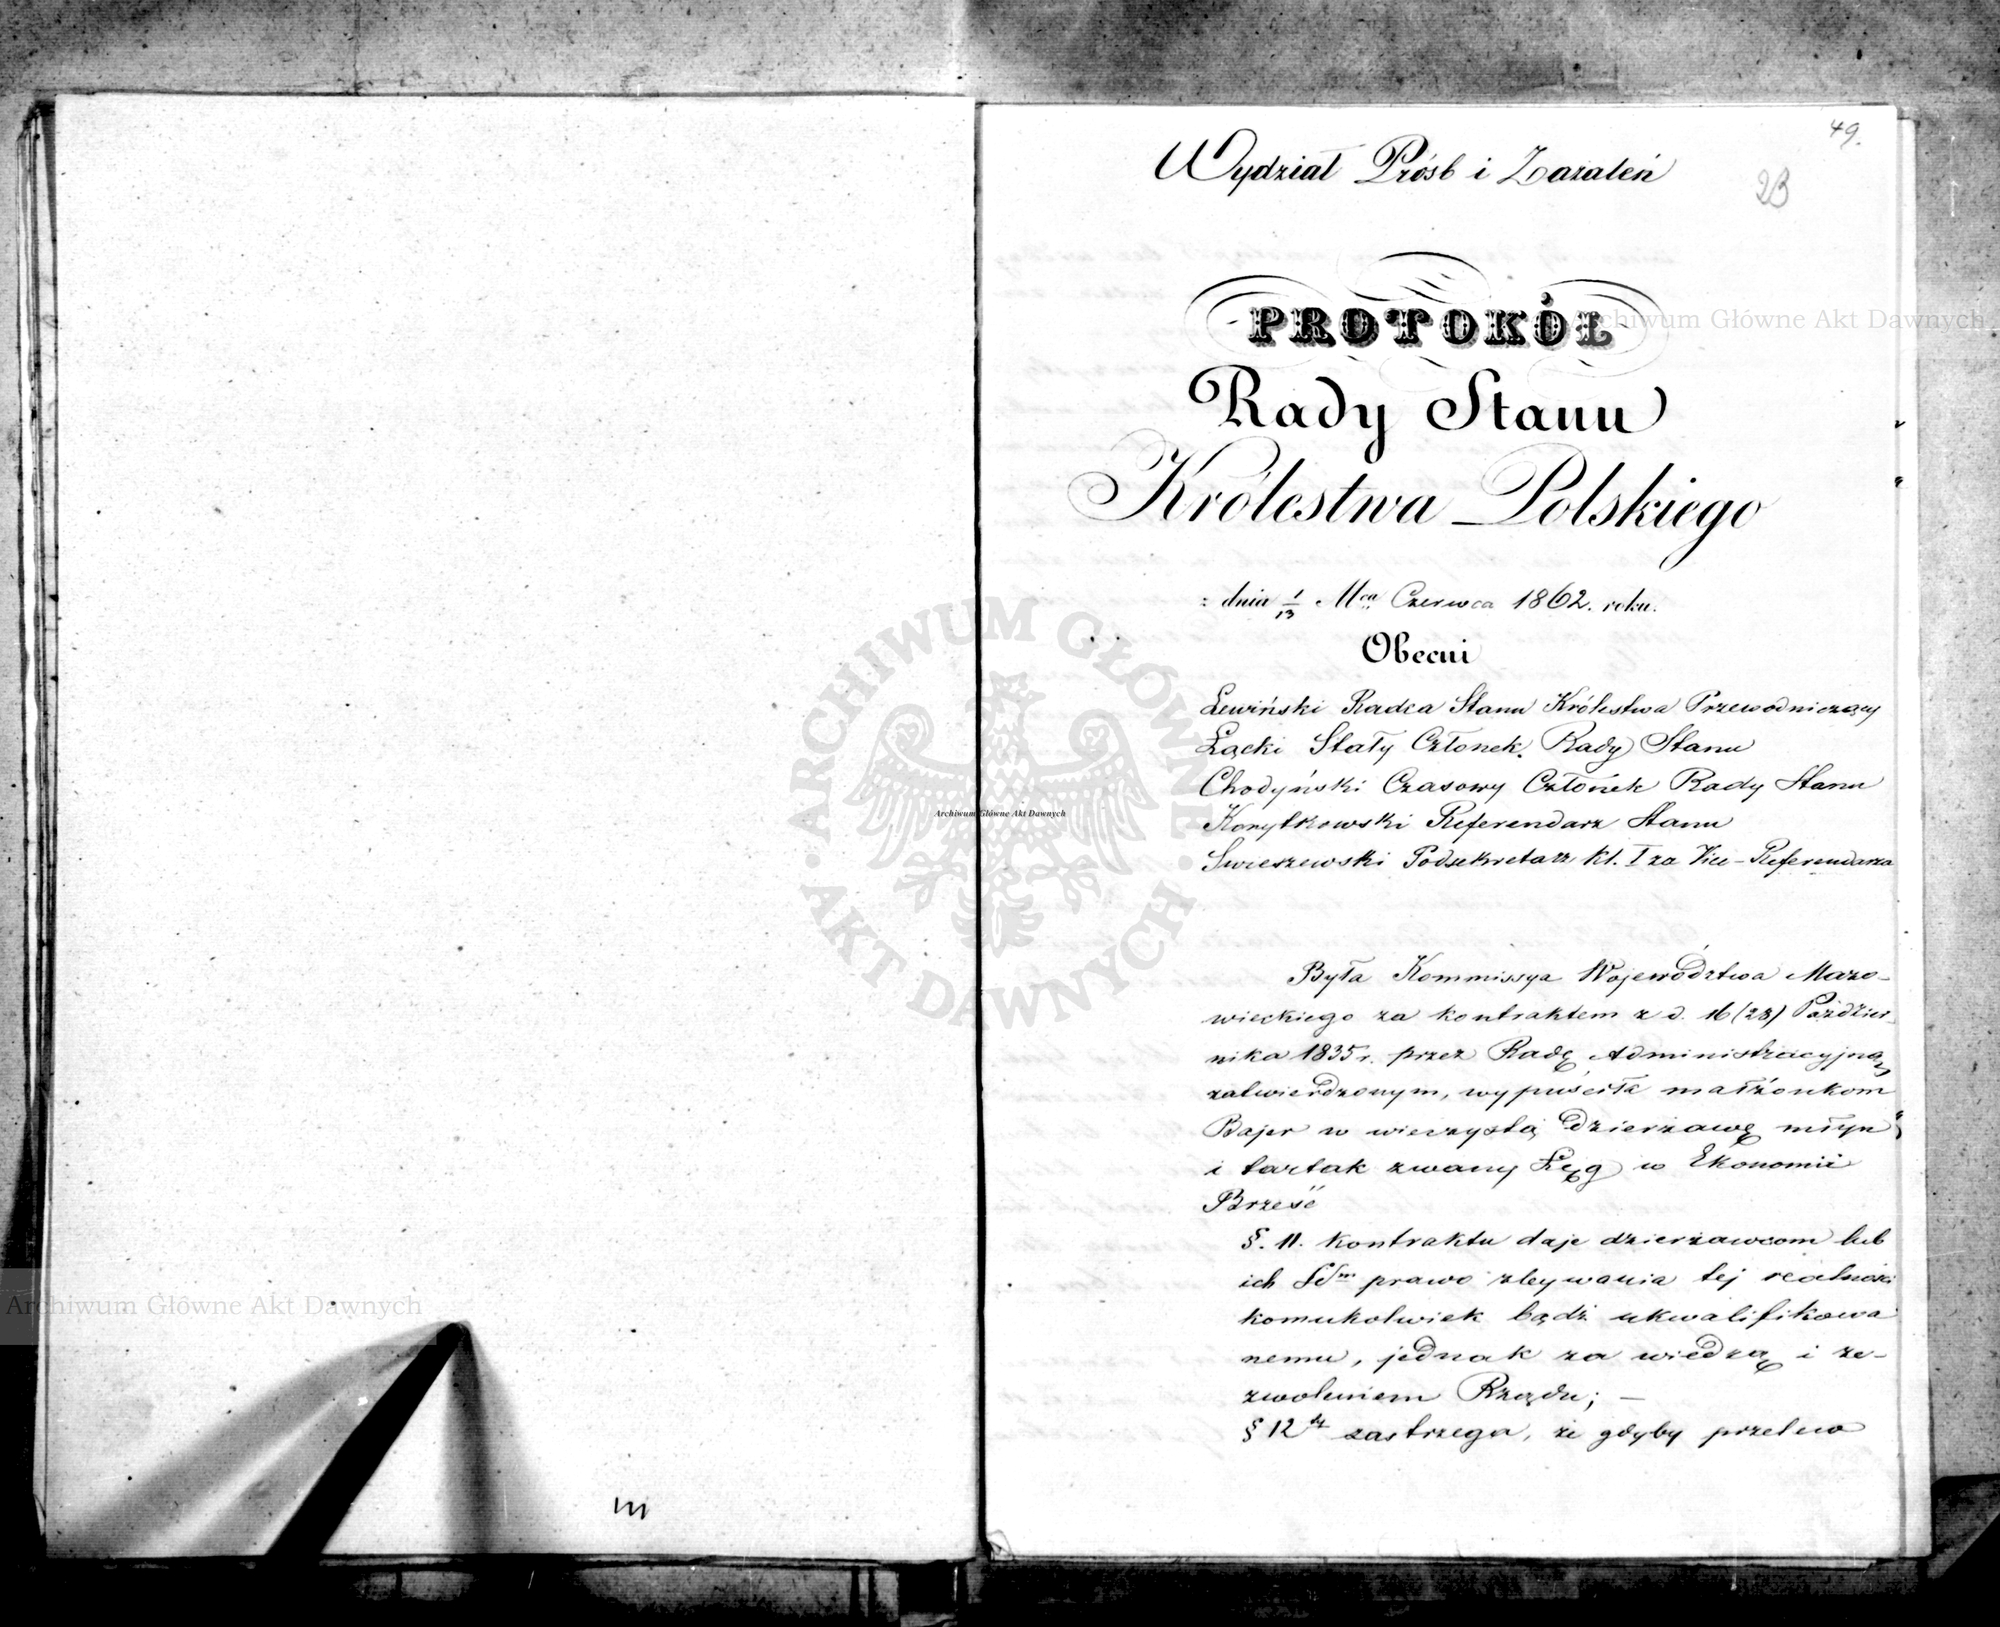 49.
Wydział Próśb i Zażaleń
23
PROTOKÓŁ
Rady Stanu
Królestwa Polskiego
dnia 1/13 Mca Czerwca 1862. roku.
Obecni
Lewiński Radca Stanu Królestwa Przewodniczący
Łącki Stały Członek Rady Stanu
Chodyński Czasowy Członek Rady Stanu
Korytkowski Referendarz Stanu
Swieszewski Podsekretarz kl. I za Vice-Referendarza
Była Kommissya Województwa Mazo-
wieckiego za kontraktem z d. 16 (28) Paździer-
nika 1835 r. przez Radę Administracyjną
zatwierdzonym, wypuściła małżonkom
Bajer w wieczystą dzierżawę młyn
i tartak zwany Łęg w Ekonomii
Brześć
§. 11. kontraktu daje dzierżawcom lub
ich prawo zbywania tej realności
komukolwiek bądź ukwalifikowa
nemu, jednak za wiedzą i ze-
zwoleniem Rządu; —
§ 12 zastrzega, że gdyby przelew
Archiwum Główne Akt Dawnych
Archiwum Główne Akt Dawnych
Archiwum Główne Akt Dawnych
ARCHIWUM GŁÓWNE AKT DAWNYCH